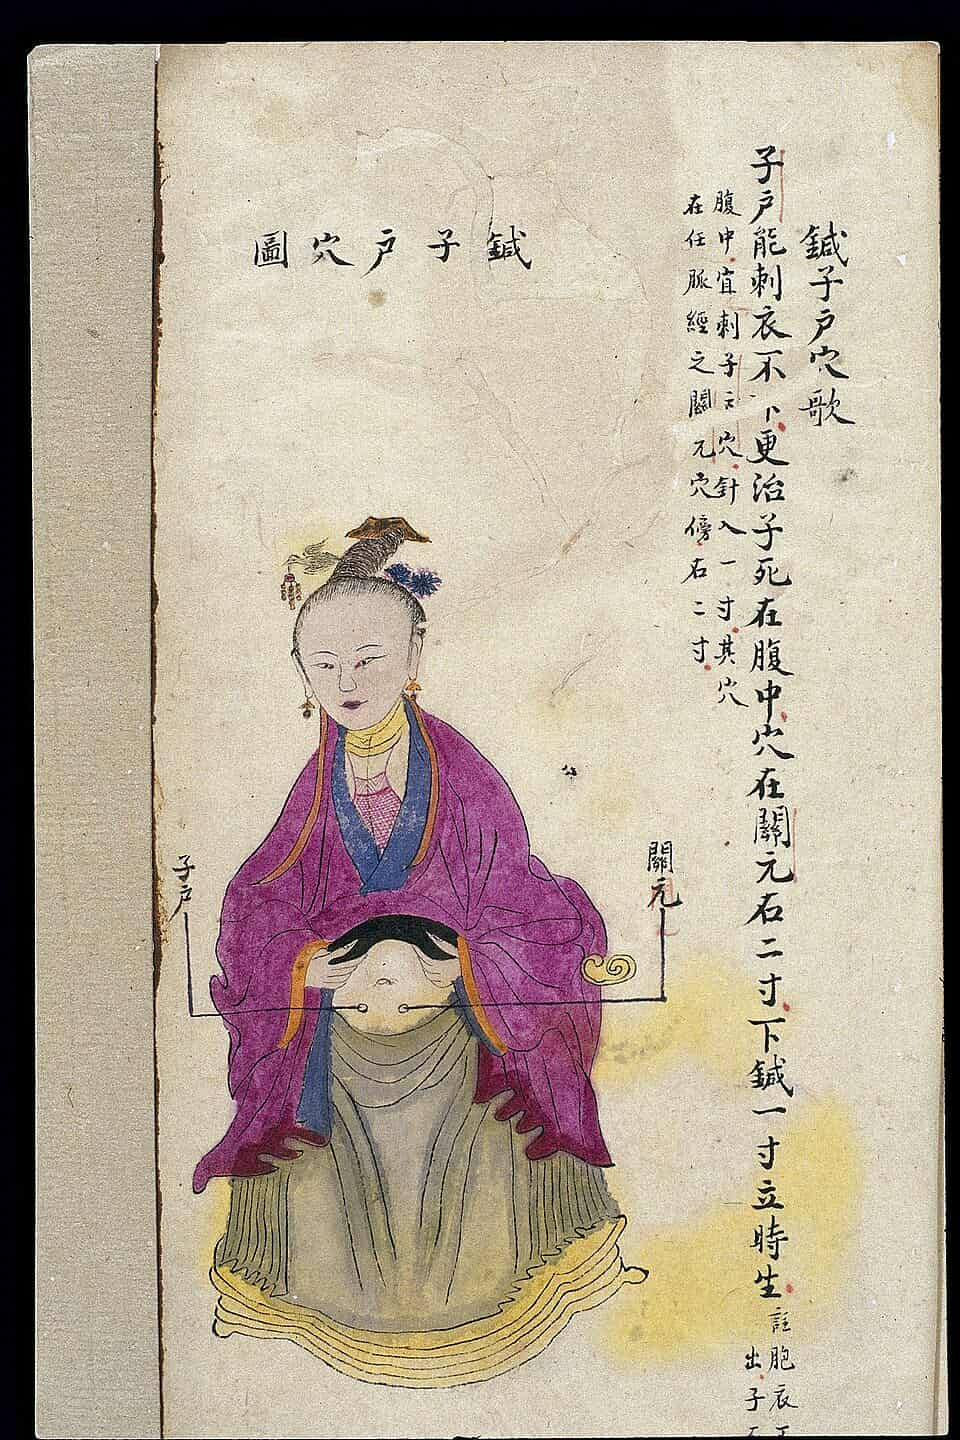 鍼子户穴歌
子户能刺衣不下更治子死在腹中穴在關元右二寸下鍼一寸立時生
註胞衣
出子
腹中宜刺子户穴針入一寸其穴
在任脈經之關元穴傍右二寸
鍼子户穴圖
關元
子户